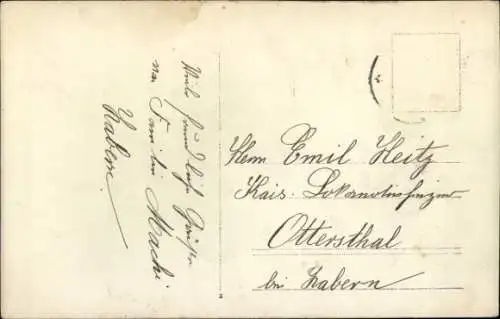 Viele freundliche Grüße
von Familie Machi
Zabern.
Herrn Emil Heitz
Kais. Lokomotivheizer
Ottersthal
bei Zabern